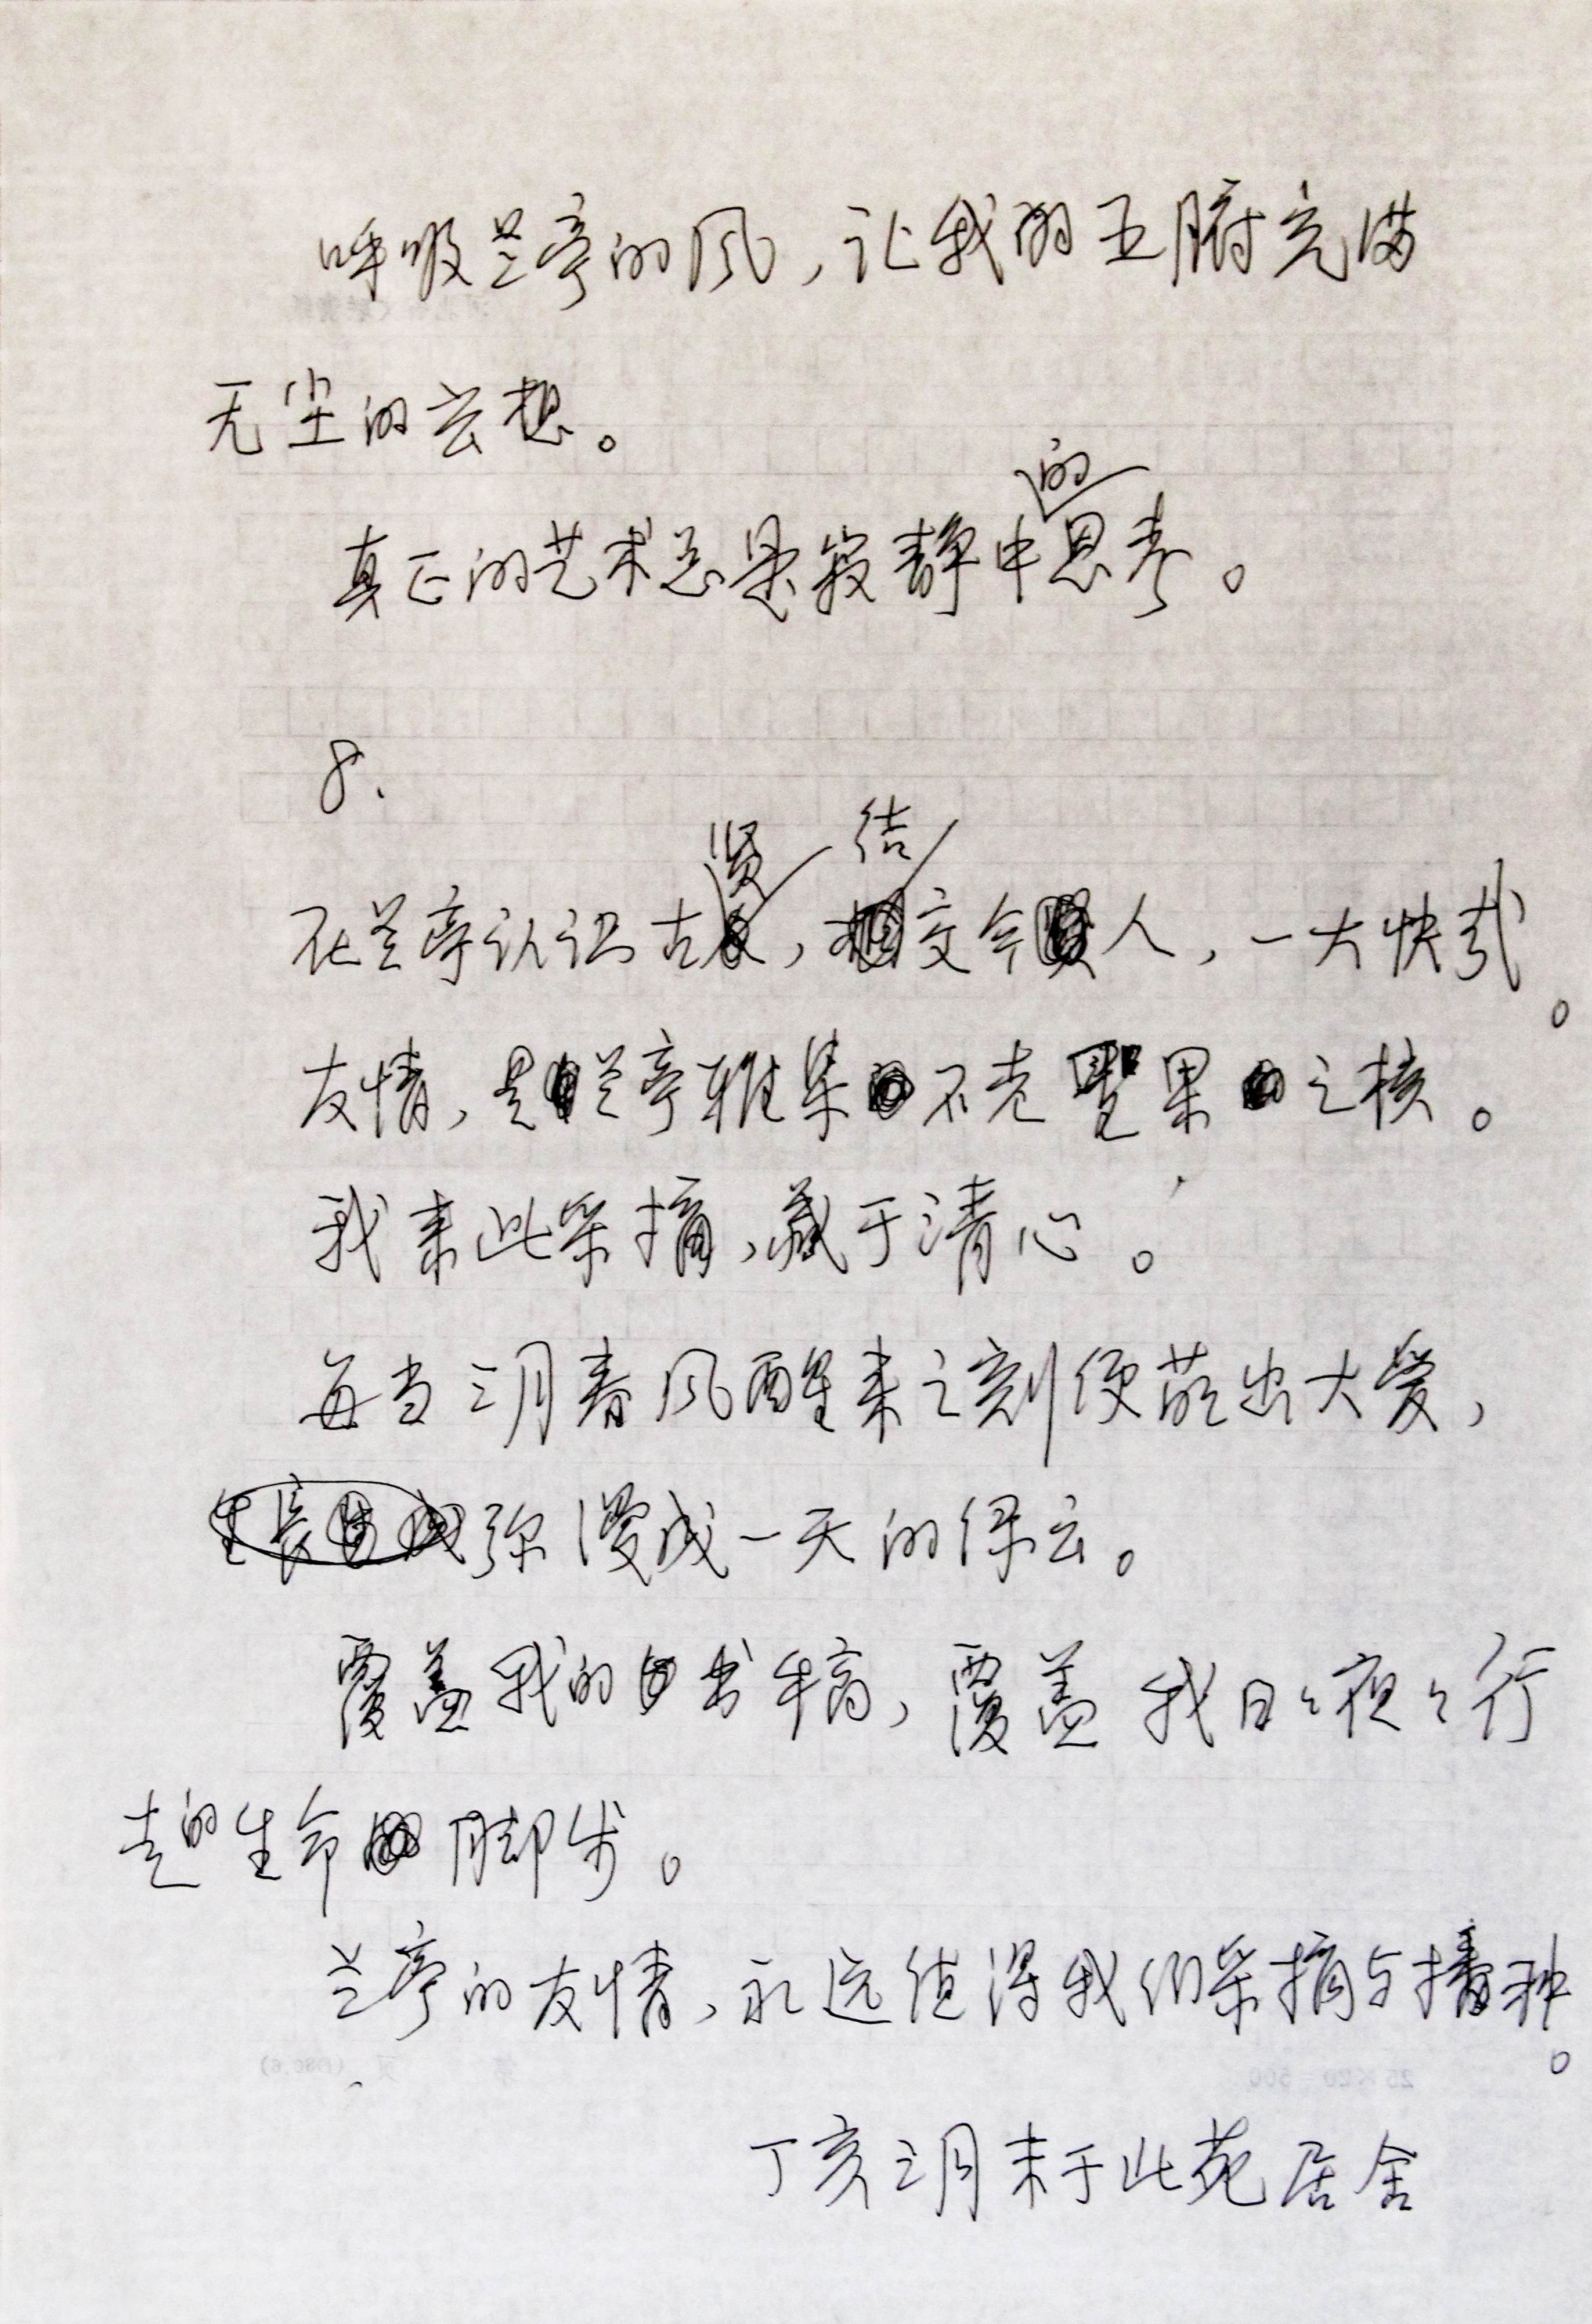 呼吸兰亭的风，让我的五腑充满
无尘的玄想。
真正的艺术总是寂静中的思考。
8.
在兰亭认识古贤，结交今人，一大快哉。
友情，是兰亭雅集不老圣果之核。
我来此采摘，藏于清心。
每当三月春风醒来之刻便萌出大爱，
弥漫成一天的绿云。
覆盖我的书稿，覆盖我日々夜々行
走的生命脚步。
兰亭的友情，永远值得我们采摘与播种。
丁亥三月末于北苑居舍